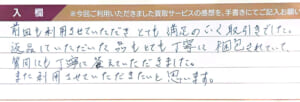 入 欄 ※今回ご利用いただきました買取サービスの感想を、手書きにてご記入お願い
前回も利用させていただき とても 満足のいく取引きでした。
返品していただいた 品も とても 丁寧に 梱包されていて、
質問にも 丁寧に 答えていただきました。
また利用させていただきたいと 思います。